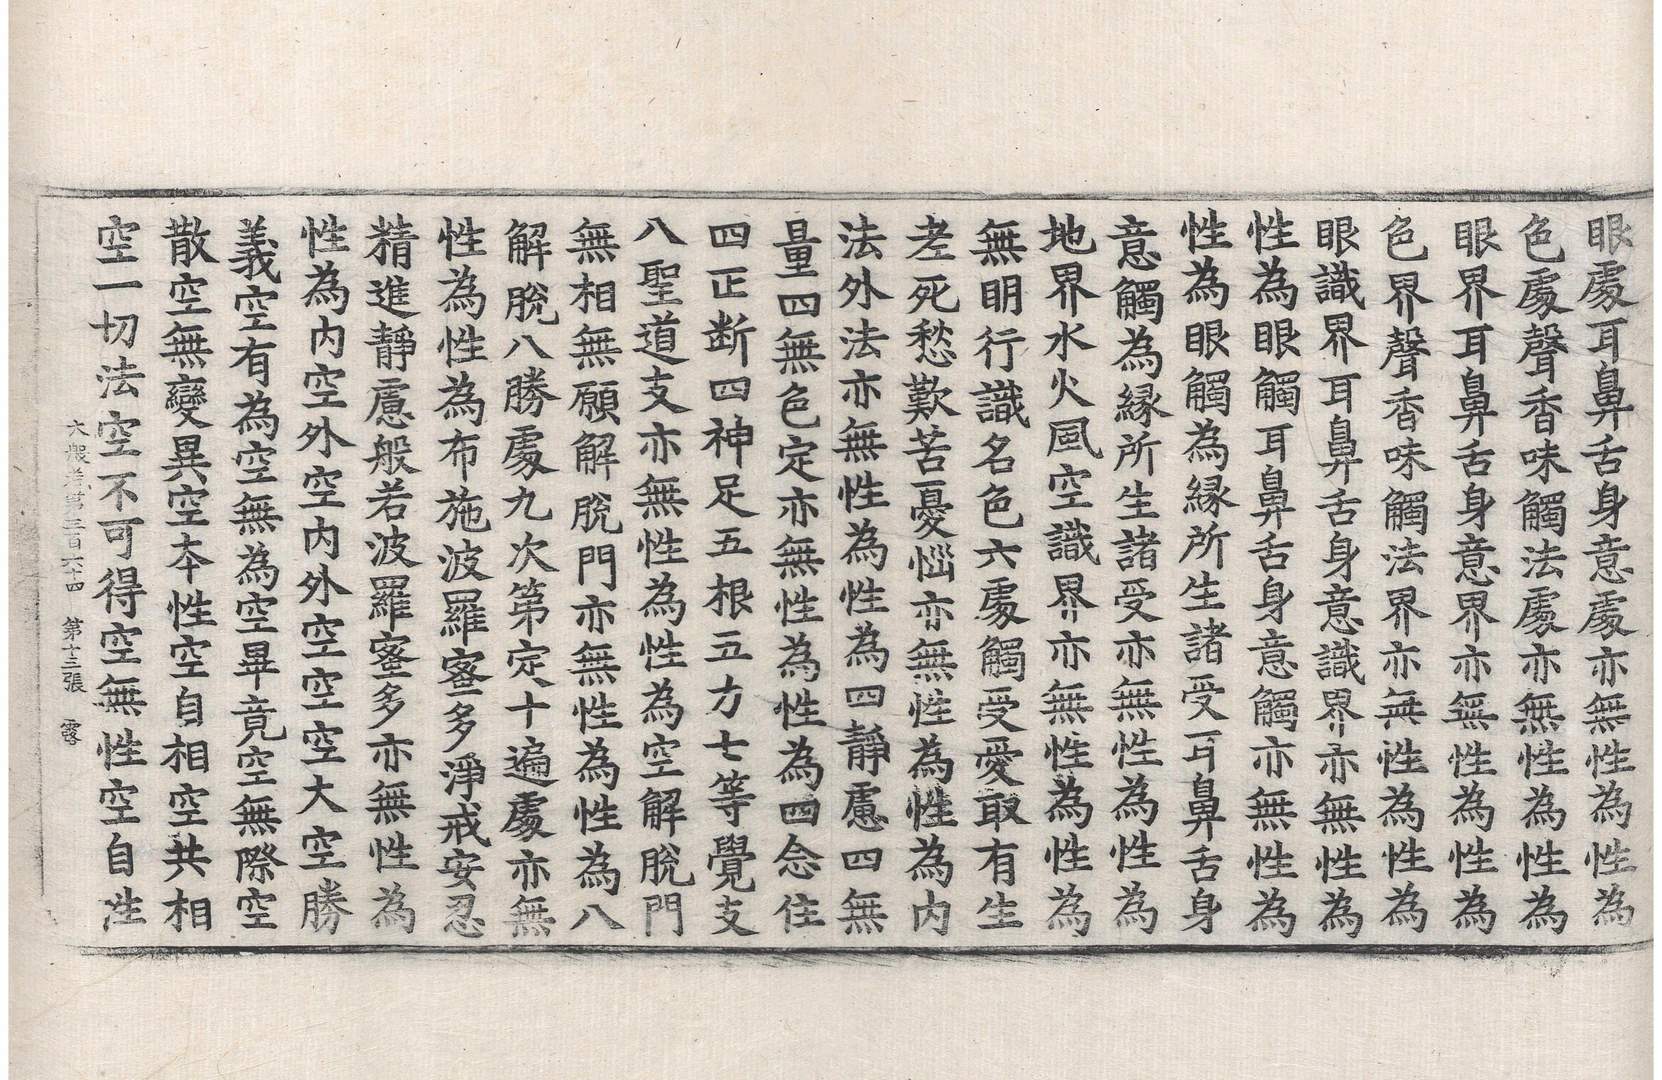 眼處耳鼻舌身意處亦無性為性為
色處聲香味觸法處亦無性為性為
眼界耳鼻舌身意界亦無性為性為
色界聲香味觸法界亦無性為性為
眼識界耳鼻舌身意識界亦無性為
性為眼觸耳鼻舌身意觸亦無性為
性為眼觸為縁所生諸受耳鼻舌身
意觸為縁所生諸受亦無性為性為
地界水火風空識界亦無性為性為
無明行識名色六處觸受愛取有生
老死愁歎苦憂惱亦無性為性為內
法外法亦無性為性為四靜慮四無
量四無色定亦無性為性為四念住
四正断四神足五根五力七等覺支
八聖道支亦無性為性為空解脫門
無相無願解脫門亦無性為性為八
解脫八勝處九次第定十遍處亦無
性為性為布施波羅蜜多淨戒安忍
精進靜慮般若波羅蜜多亦無性為
性為內空外空內外空空空大空勝
義空有為空無為空畢竟空無際空
散空無變異空本性空自相空共相
空一切法空不可得空無性空自性
大般若第三百六十四 第十三張 露